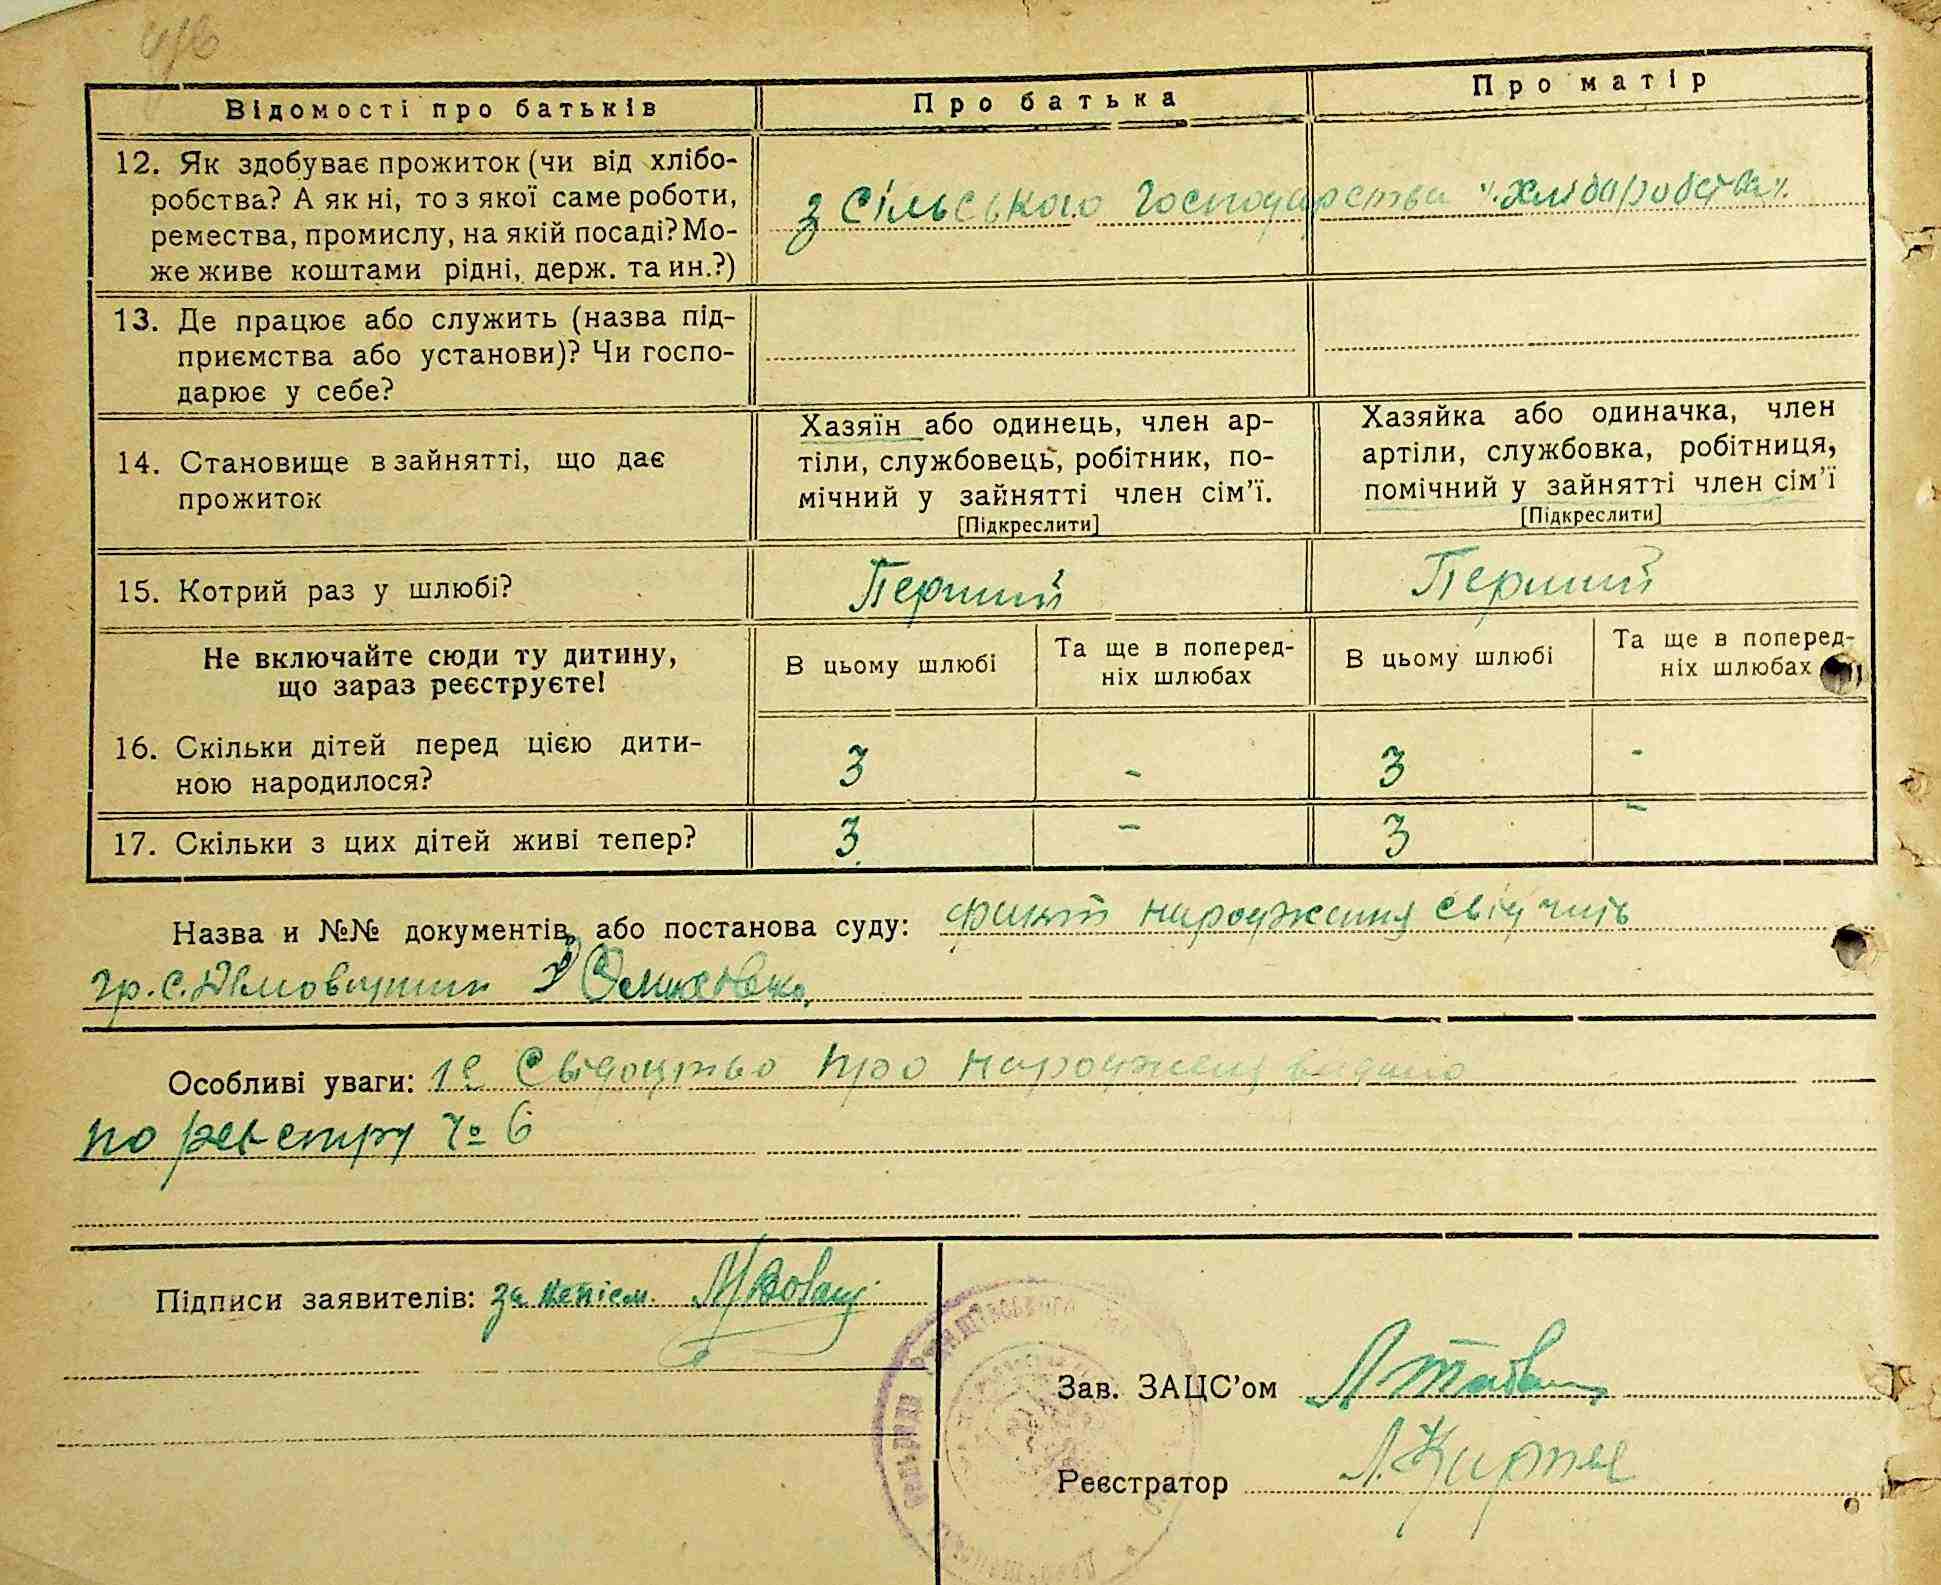 Відомості про батьків
Про батька
Про матір
12. Як здобуває прожиток (чи від хлібо-
робства? А як ні, то з якої саме роботи,
ремества, промислу, на якій посаді? Мо-
же живе коштами рідні, держ. та ин.?)
з сільського господарства "хліборобства".
13. Де працює або служить (назва під-
приємства або установи)? Чи госпо-
дарює у себе?
14. Становище в зайнятті, що дає
прожиток
Хазяїн або одинець, член ар-
тіли, службовець, робітник, по-
мічний у зайнятті член сім'ї.
[Підкреслити]
Хазяйка або одиначка, член
артіли, службовка, робітниця,
помічний у зайнятті член сім'ї
[Підкреслити]
15. Котрий раз у шлюбі?
Перший
Перший
Не включайте сюди ту дитину,
що зараз реєструєте!
В цьому шлюбі
Та ще в поперед-
ніх шлюбах
В цьому шлюбі
Та ще в поперед-
ніх шлюбах
16. Скільки дітей перед цією дити-
ною народилося?
3
-
3
-
17. Скільки з цих дітей живі тепер?
3
-
3
-
Назва и №№ документів, або постанова суду: факт народження свідчить
гр. с.
Особливі уваги: Свідоцтво про народженя видано
по реєстру № 6
Підписи заявителів: за
Зав. ЗАЦС'ом
Реєстратор